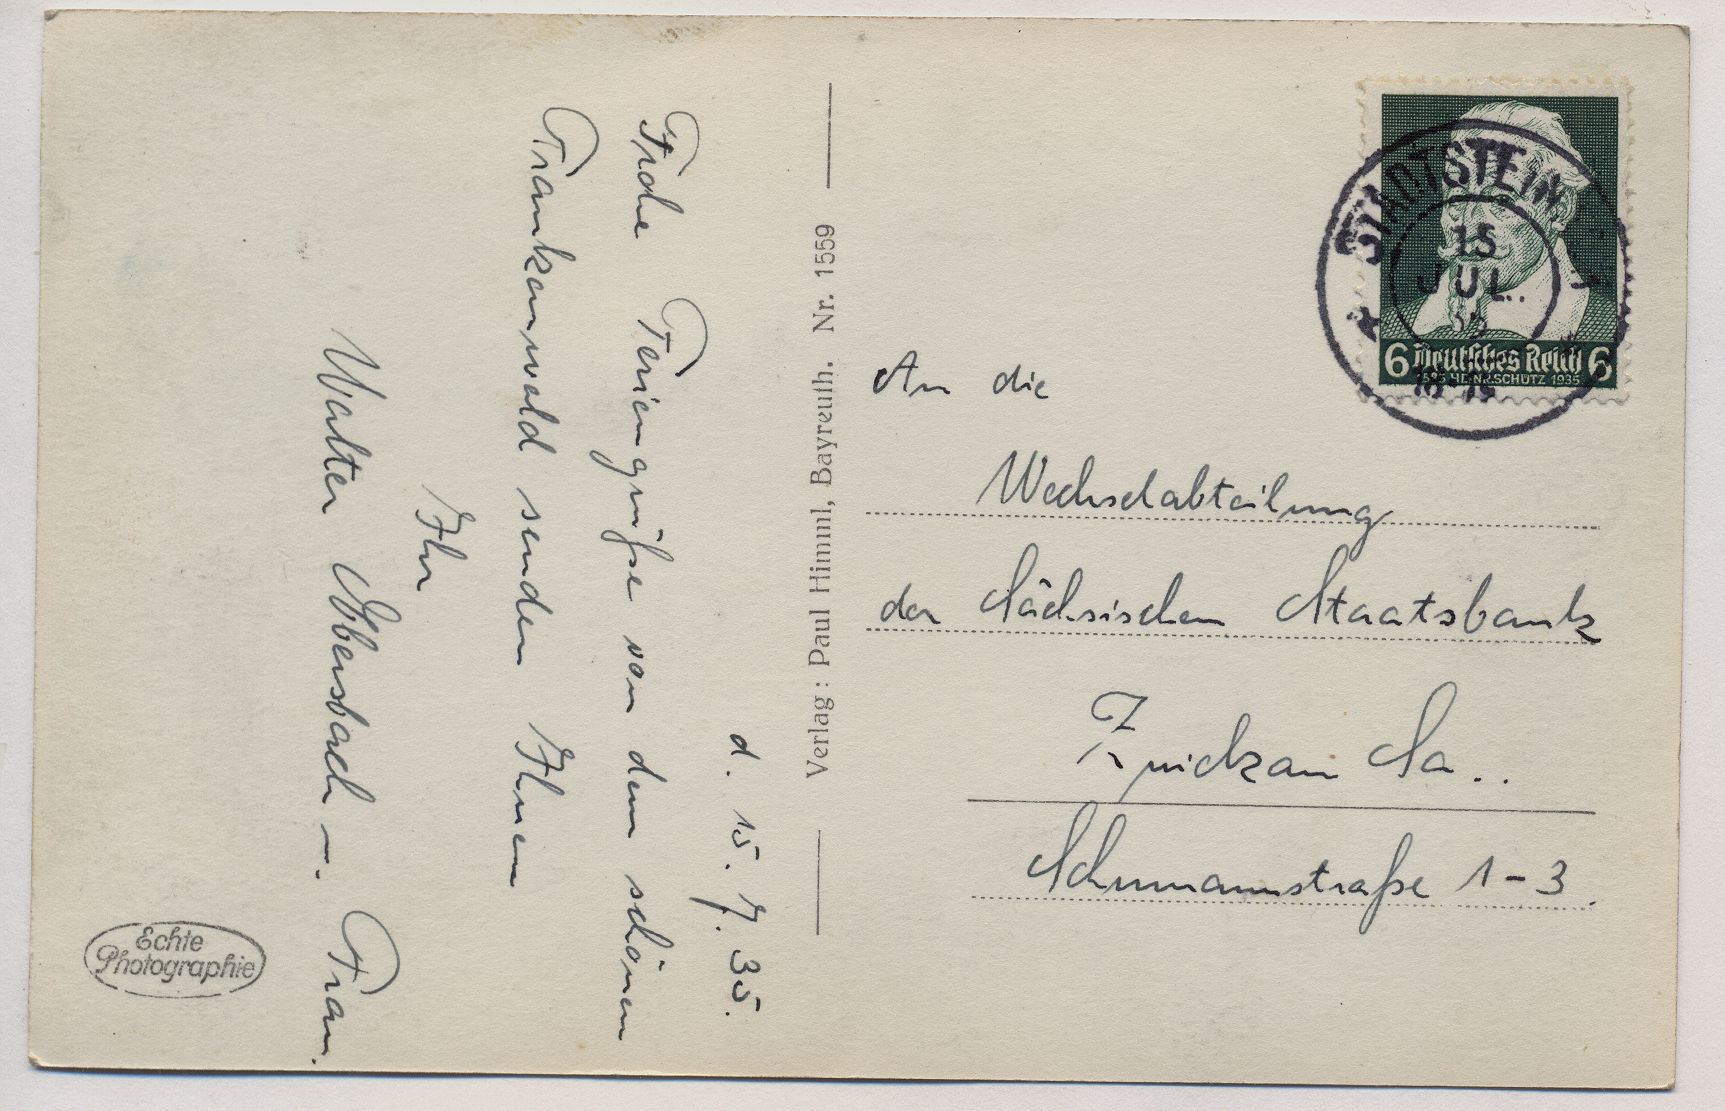 d. 15. 7. 35.
Frohe Feriengrüße von dem schönen
Frankenwald senden Ihnen
Ihr
Walter Ebersbach –. Frau.
Echte
Photographie
Verlag: Paul Himml, Bayreuth. Nr. 1559
STADTSTEIN
15
JUL.
6 Deutsches Reich 6
1585 HEINR. SCHÜTZ 1935
An die
Wechselabteilung
der Sächsischen Staatsbank
Zwickau Sa..
Schumannstraße 1-3.